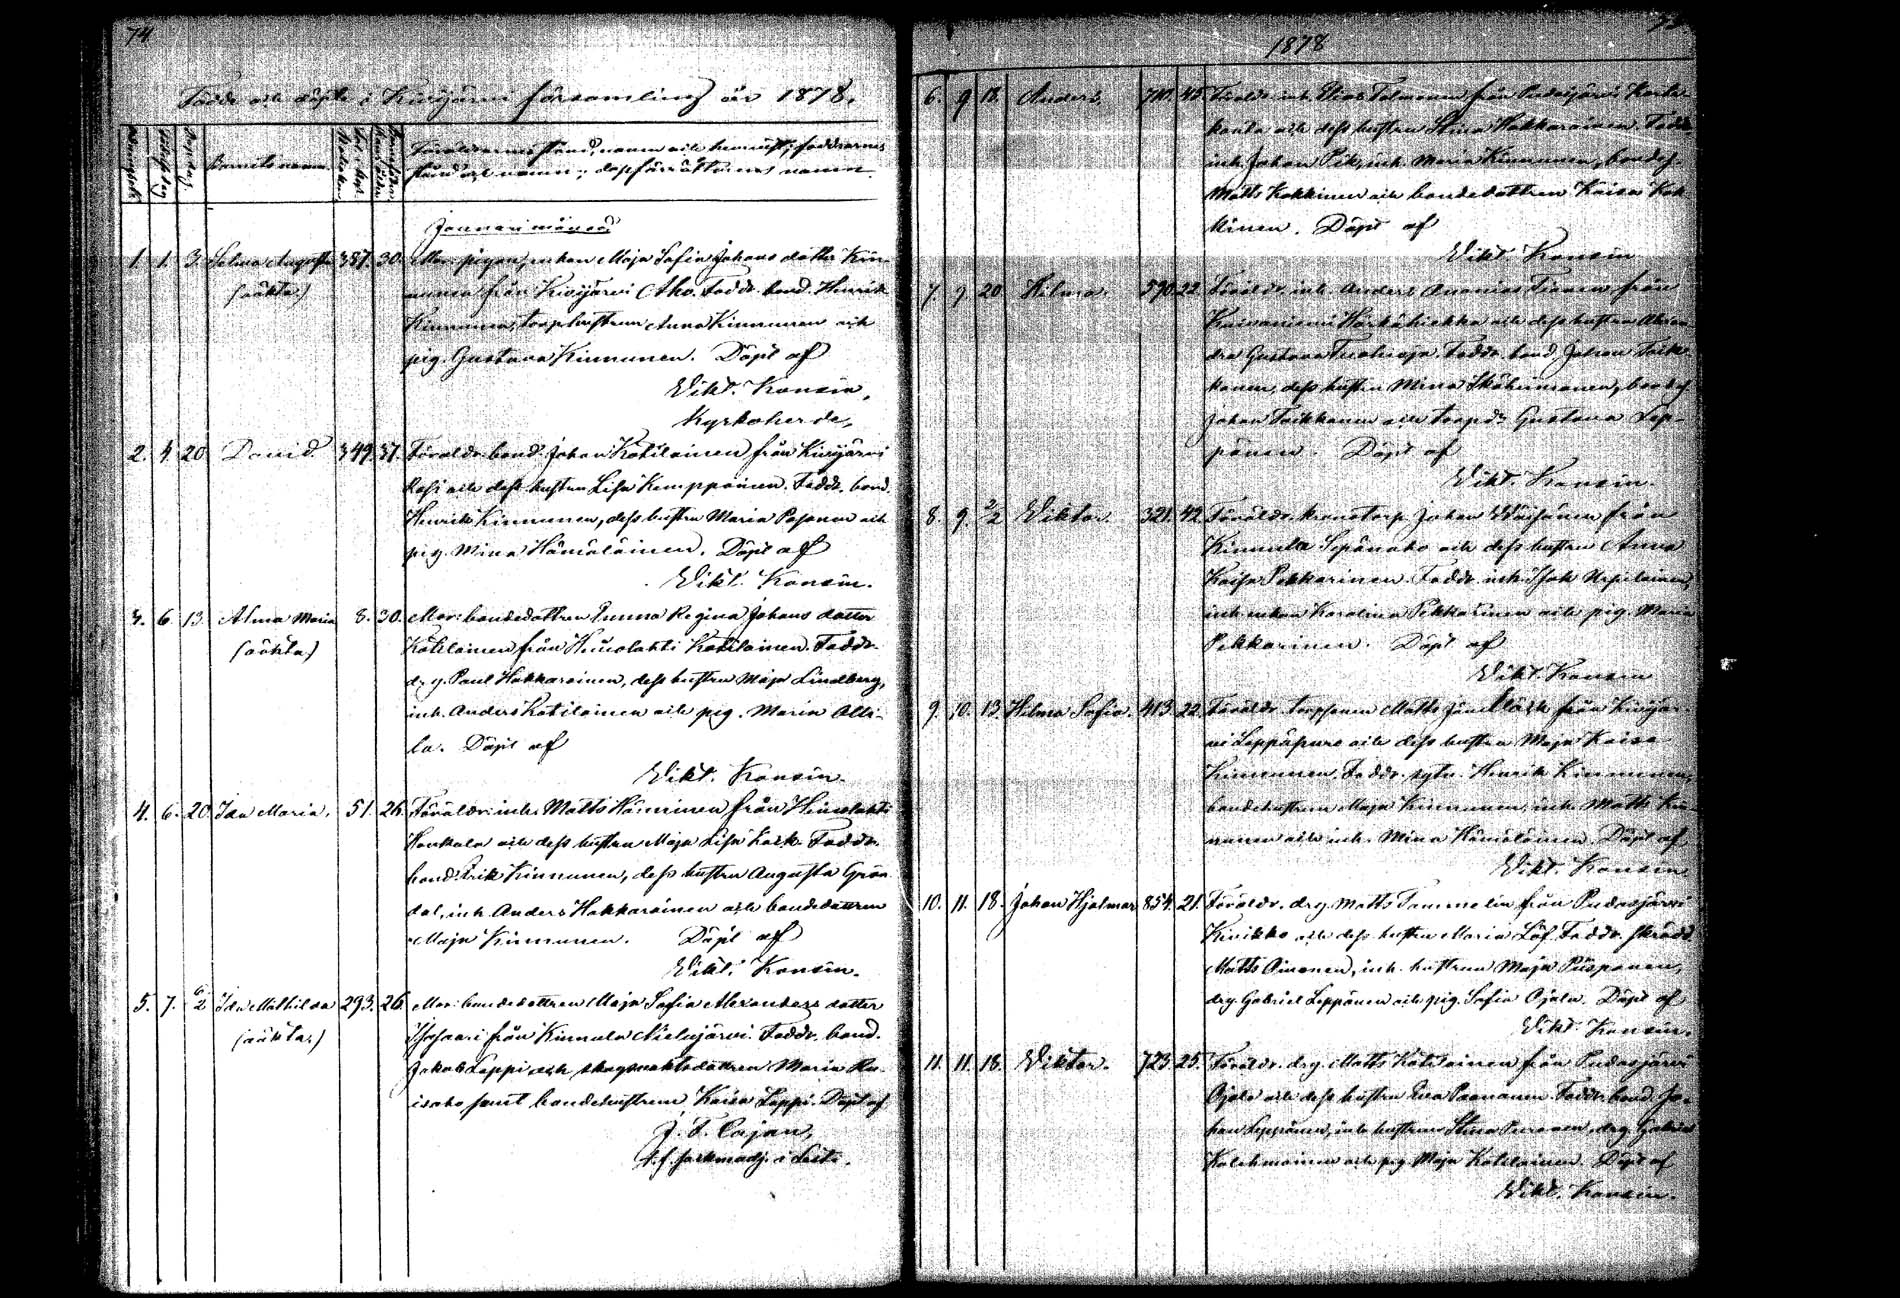 74
Födde och döpte i Kivijärvi församling år 1878.
Barnets namn.
Föräldrarnes stånd, namn och hemvist; faddrarnes
stånd och namn; dopförrättarens namn.
Januari månad
1. 1. 3. Selma Augusta 387. 30. Mor: pigan, enkan Maja Sofia Johans dotter Kin-
(oäkta.) nunen från Kivijärvi Aho. Faddr. bond. Henrik
Kinnunen, torp.hustrun Anna Kinnunen och
pig. Gustava Kinnunen. Döpt af
Vikt. Konsin,
Kyrkoherde,
2. 4. 20. David. 349. 37. Föräldr. bond. Johan Kotilainen från Kivijärvi
och dess hustru Lisa Kemppainen. Faddr. bond.
Henrik Kinnunen, dess hustru Maria Posonen och
pig. Mina Hämäläinen. Döpt af
Vikt. Konsin.
3. 6. 13. Alma Maria 8. 30. Mor: bondedottren Emma Regina Johans dotter
(oäkta) Kotilainen från Heinolahti Kotilainen. Faddr.
dr.g. Paul Hakkarainen, dess hustru Maja Lindberg,
inh. Anders Kotilainen och pig. Maria Olli-
la. Döpt af
Vikt. Konsin.
4. 6. 20. Ida Maria. 51. 26. Föräldr. inh. Matts Hänninen från Heinolahti
Honkala och dess hustru Maja Lisa Kork. Faddr.
bond. Erik Kinnunen, dess hustru Augusta Grön-
dal, inh. Anders Hakkarainen och bondedottren
Maja Kinnunen. Döpt af
Vikt. Konsin.
5. 7. 6/2 Ida Mathilda 293. 26. Mor: bondedottren Maja Sofia Alexanders dotter
(oäkta.) från Kinnula Nielujärvi. Faddr. bond.
Jakob Leppi och skogvaktsdottren Maria Ra-
isaho samt bondehustrun Kaisa Leppi. Döpt af
J. F. Cajan,
t.f. sockn.adj. i
1878
6. 9. 18. Anders. 710. 45. Föräldr. inh. Elias Tolmunen från Pudasjärvi
och dess hustru Stina Hakkarainen. Faddr.
inh. Johan Pik, inh. Maria Kinnunen, bondes.
Matts Kokkinen och bondedottren Kaisa Kok-
kinen. Döpt af
Vikt. Konsin
7. 9. 20. Hilma. 590. 22. Föräldr. inh. Anders Ananias Tiainen från
Koivuniemi Härkähiekka och dess hustru
dra Gustava. Faddr. bond. Johan Toik-
kanen, dess hustru Mina, bondes.
Johan Toikkanen och torp.dr Gustava Lep-
pänen. Döpt af
Vikt. Konsin.
8. 9. 2/2 Viktor. 321. 42. Föräldr. kronotorp. Johan Väisänen från
Kinnula Sepänaho och dess hustru Anna
Kaisa Pekkarinen. Faddr. inh. Isak
inh. enkan Karolina Pekkarinen och pig. Maria
Pekkarinen. Döpt af
Vikt. Konsin
9. 10. 13. Hilma Sofia. 413. 22. Föräldr. torpsonen Matts från Kivijär-
vi Leppäpuro och dess hustru Maja Kaisa
Kinnunen. Faddr. sytn. Henrik Kinnunen,
bondehustrun Maja Kinnunen, inh. Matts Kin-
nunen och inh. Mina Hämäläinen. Döpt af
Vikt. Konsin
10. 11. 18. Johan Hjalmar 854. 21. Föräldr. dr.g. Matts Tammelin från Pudasjärvi
Kivikko och dess hustru Maria Löf. Faddr. skrädd.
Matts Oinonen, inh. hustrun Maja Piispanen,
dr.g. Gabriel Leppänen och pig. Sofia Ojala. Döpt af
Vikt. Konsin.
11. 11. 18. Viktor. 723. 25. Föräldr. dr.g. Matts Kotilainen från Pudasjärvi
Ojala och dess hustru Eva Paananen. Faddr. bond. Jo-
han Leppänen, inh. hustrun Stina Puranen, dr.g. Gabriel
Kolehmainen och pig. Maja Kotilainen. Döpt af
Vikt. Konsin.